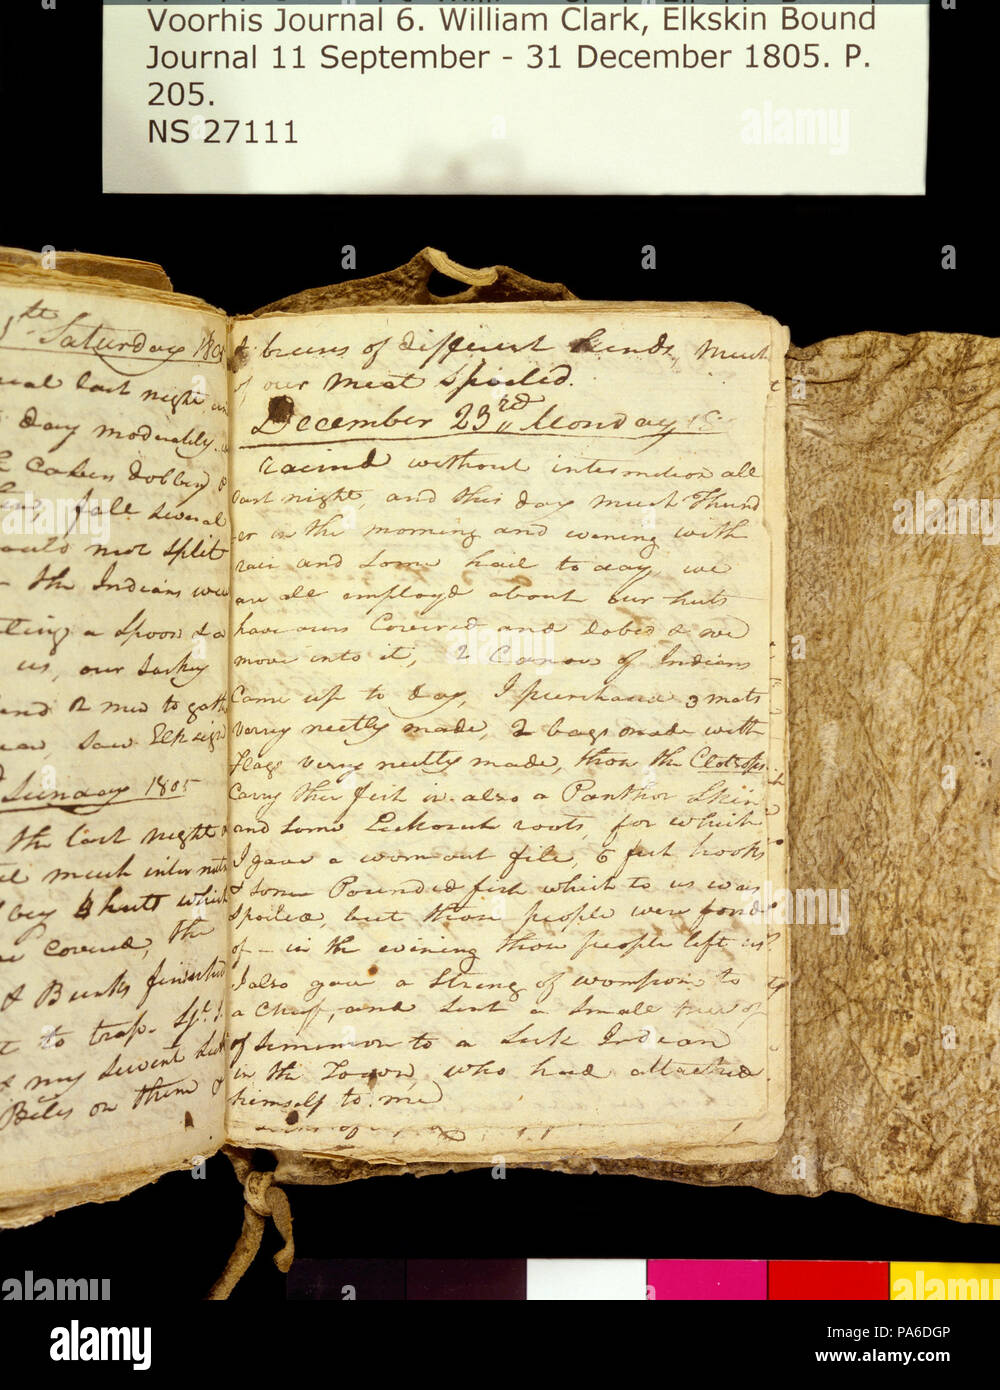 Voorhis Journal 6. William Clark, Elkskin Bound
Journal 11 September - 31 December 1805. P.
205.
NS 27111
th Saturday 180
last night
day moderately
fall several
not split
the Indians were
a Spoon & a
us, our Sickey
and 2 men to gath
Saw Elk sign
Sunday 1805
the last night &
much
hutt which
Covered, the
& Bunks finished
to trap. Sjt.
my Servent
Biles on them &
& bruses of different Kinds, Much
of our Meat Spoiled.
December 23rd Monday 18
rained without intermition all
last night, and this day much Thund
er in the morning and evening with
rain and Some hail to day, we
are all employd about our huts
have ours Covered and dobed & we
move into it, 2 Canoes of Indians
Came up to day, I purchased 3 mats
verry neetly made, 2 bags made with
Flags verry neetly made, those the Clotsops
Carry ther fish in also a Panthor Skin
and Some Lickorish roots, for which
I gave a worn out file, 6 fish hooks
& Some Pounded fish which to us was
Spoiled, but those people were fond
of - in the evining those people left us
I also gave a String of wompom to
a Chief, and Sent a Small
of Simimon to a Sick Indian
in the Town, who had attached
himself to me
alamy
a
alamy
Image ID: PA6DGP
www.alamy.com